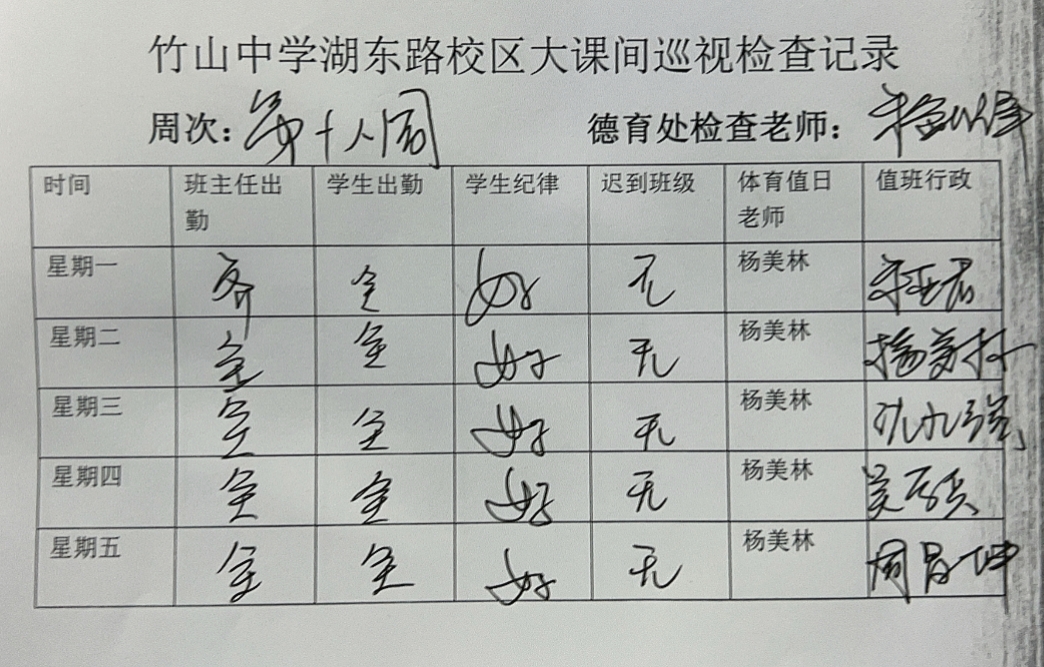 竹山中学湖东路校区大课间巡视检查记录
周次：第十八周 德育处检查老师：
时间 班主任出勤 学生出勤 学生纪律 迟到班级 体育值日老师 值班行政
星期一 齐 全 好 无 杨美林
星期二 全 全 好 无 杨美林 杨美林
星期三 全 全 好 无 杨美林
星期四 全 全 好 无 杨美林
星期五 全 全 好 无 杨美林 周昌坤